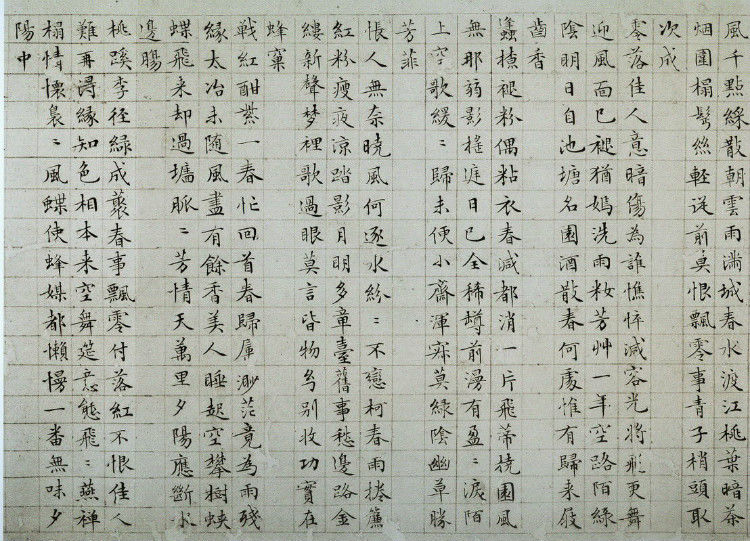 風千點綵散朝雲雨滿城春水渡江桃葉暗茶
烟圍榻鬂絲輕從前莫恨飄零事青子梢頭取
次成
零落佳人意暗傷為誰憔悴減容光將飛更舞
迎風面已褪猶嫣洗雨妝芳艸一年空路陌綠
陰明日自池塘名園酒散春何處惟有歸来屐
齒香
蠭撩褪粉偶粘衣春減都消一片飛蒂撓園風
無那弱影搖庭日已全稀樽前漫有盈〻淚陌
上空歌緩〻歸未便小齋渾寂莫綠陰幽草勝
芳菲
悵人無奈曉風何逐水紛〻不戀柯春雨捲簾
紅粉瘦夜涼踏影月明多章臺舊事愁邊路金
縷新聲梦裡歌過眼莫言皆物幻別收功實在
蜂窠
戰紅酣紫一春忙回首春歸屬渺茫竟為雨殘
緣太冶未随風盡有餘香美人睡起空攀樹蛺
蝶飛来却過墻脈〻芳情天萬里夕陽應斷水
邊腸
桃蹊李徑綠成叢春事飄零付落紅不恨佳人
難再得緣知色相本來空舞筵意態飛〻燕禪
榻情懷裊〻風蝶使蜂媒都懶慢一番無味夕
陽中